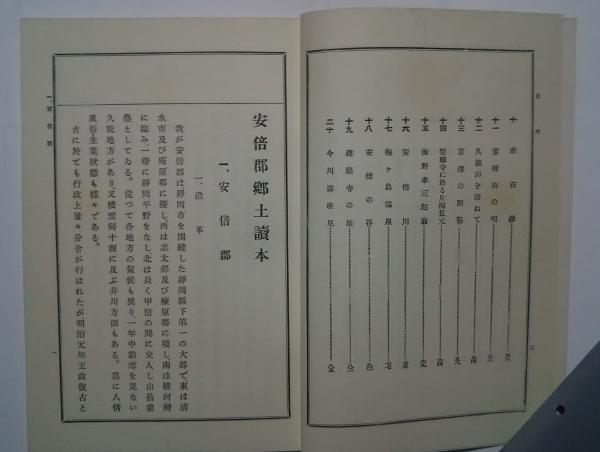 十 赤石嶽
十一 霊山の唄
十二 久能山を訪ねて
十三
十四 誓願寺に於る片桐且元
十五 海野孝三郎翁
十六 安倍川
十七 梅ヶ島温泉
十八 安倍の谷
十九 建穂寺の址
二十 今川壽桂尼
二
安倍郡郷土讀本
一、安倍郡
一、沿革
我が安倍郡は静岡市を圍繞した静岡縣下第一の大郡で、東は清
水市及び庵原郡に接し、西は志太郡及び榛原郡に境し、南は駿河灣
に臨み、一帯に静岡平野をなし、北は長く甲信の間に突入し山岳重
疊としてゐる。從つて各地方の氣候も異り、一年中霜雪を見ない
久能地方があり、又積雪何十糎に及ぶ井川方面もある。爲に人情
風俗生業狀態も樣々である。
古に於ても行政上屢々分合が行はれたが明治元年王政復古と
一、安倍郡
一